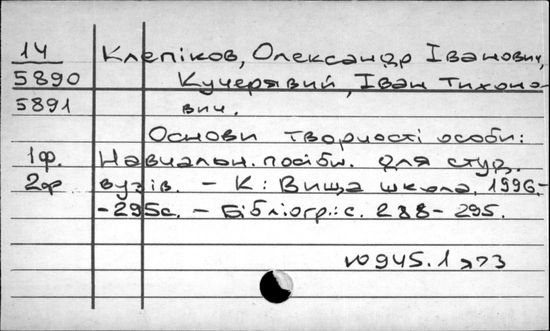 14 Клепіков, Олександр Іванович,
5890 Кучерявий, Іван Тихоно-
5891 вич.
Основи творчості особи:
1ф. Навчальн. посібн. для студ.
2ф вузів. – К: Вища школа, 1996.-
-295с. – Бібліогр.: с. 288-295.
ю945.1я73